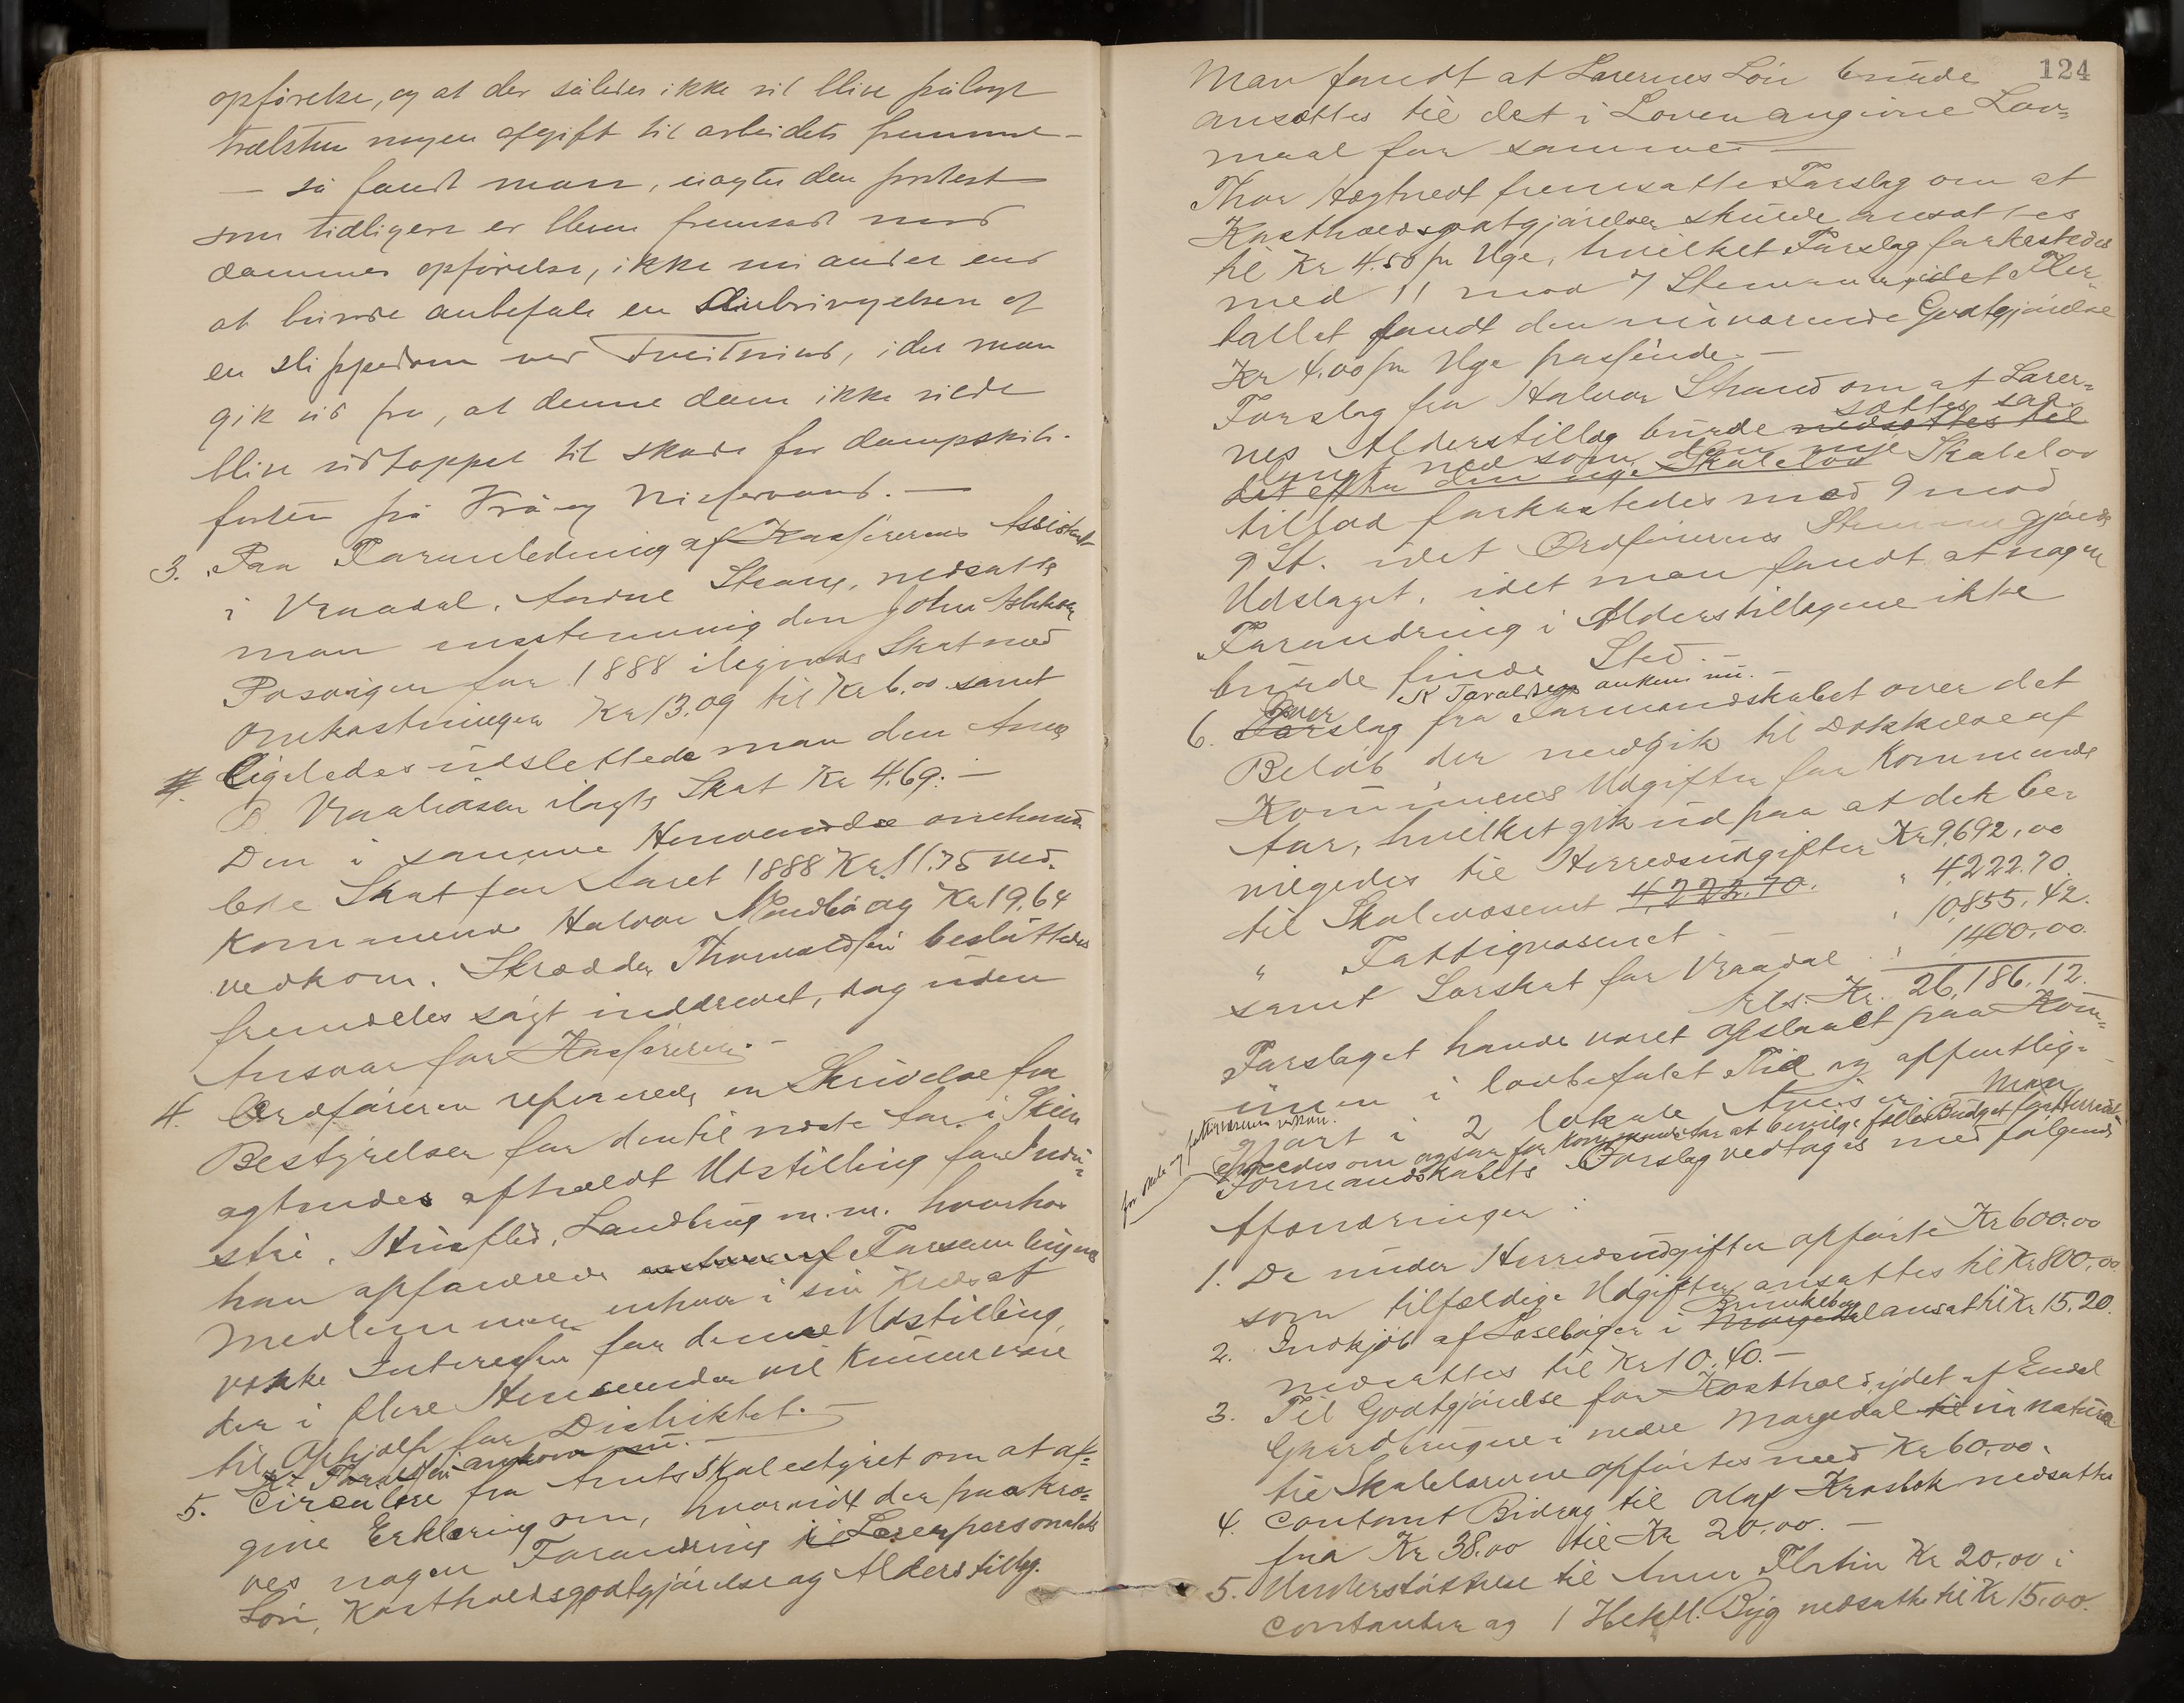 opførelse, og at der således ikke vil blive pålagt
trælsten nogen afgift til arbeidets fremme —
— så fandt man, uagtet den protest
som tidligere er bleven fremsat mod
dammens opførelse, ikke nu andet end
at burde anbefale en Anbringelsen af
en slippedam ved Tveitsund, idet man
gik ud fra, at denne dam ikke vilde
blive udtappet til skade for dampskibs-
farten på Vrå og Nisservand. —
3. Paa Foranledning af Kasserernes Assistent
i Vraadal, Andne Strang, nedsatte
man enstemmig den John
for 1888 ilignede Skat med
Omkostninger Kr 13.09 til Kr 6.00 samt
Ligeledes udslettede man den
ilagte Skat Kr 4.69. —
Den i samme Henvendelse omhand-
lede Skat for Aaret 1888 Kr. 11.75 ved-
kommende Halvor og Kr 19,64
vedkom. Skrædder Thorvaldsen besluttedes
fremdeles søgt inddrevet, dog uden
Ansvar for Kassereren. —
4. Ordføreren refererede en Skrivelse fra
Bestyrelsen for den til næste Aar i Skien
agtendes afholdt Udstilling for Indu-
stri, Husflid, Landbrug m.m. hvorhos
han opfordrede Forsamlingens
Medlemmer enhver i sin Kreds at
vække Interesse for denne Udstilling,
der i flere Henseender vil kunne være
til Ophjælp for Distriktet. —
K. Tharaldsen ankom nu. —
5. Circulære fra Amtsskolestyret om at af-
give Erklæring om, hvorvidt der paakræ-
ves nogen Forandring i Lærerpersonalets
Løn, Kostholdsgodtgjørelse og Alderstillæg.
124
Man fandt at Lærernes Løn burde
ansættes til det i Loven angivne Lav-
maal for samme —
Thor Hegtvedt fremsatte Forslag om at
Kostholdsgodtgjørelsen skulde ansættes
til Kr 4.50 pr Uge, hvilket Forslag forkastedes
med 11 mod 7 Stemmer, idet Fler-
tallet fandt den nuværende Godtgjørelse
Kr 4.00 pr Uge passende. —
Forslag fra Halvor Strand om at Lærer-
sættes saa-
nes Alderstillæg burde nedsættes til
langt ned som den nye Skolelov
det efter den nye Skolelov
tillod forkastedes med 9 mod
9 St. idet Ordførerens Stemme gjorde
Udslaget, idet man fandt at nogen
Forandring i Alderstillægene ikke
burde finde Sted. —
K Taraldsen ankom nu. —
Over
6. Forslag fra Formandskabet over det
Beløb der medgik til Dækkelse af
Kommunens Udgifter for kommende
Aar, hvilket gik ud paa at det be-
vilgedes til Herredsudgifter Kr 9,692,00
til Skolevæsenet 4,222.70. " 4,222.70.
" Fattigvæsenet - " 10,855,42.
samt Lørskat for Vraadal " 1400,00.
tils. Kr. 26,186.12.
Forslaget havde været opslaaet paa Kom-
munen i lovbefalet Tid og offentlig-
gjort i 2 lokale Aviser. Man
enedes om ogsaa for kommende Aar at bevilge fælles Budget for Herreds-
for skole og fattigvæsenet vedkom.
Formandskabets Forslag vedtages med følgende
Afændringer:
1. De under Herredsudgifter opførte Kr 600.00
som tilfældige Udgifter ansættes til Kr 800,00
2. Indkjøb af Læsebøger i Brunkeberg Morgedal ansat til Kr 15,20.
nedsættes til Kr 10.40. —
3. Til Godtgjørelse for Kosthold ydet af Endel
Gaardbrugere i nedre Morgedal til in natura
til Skolelærerne opførtes med Kr 60,00.
4. Contant Bidrag til Olaf nedsattes
fra Kr 38.00 til Kr 20.00. —
5. Understøttelse til Anne Flatin Kr 20.00 i
contanter og 1 Hektl. Byg nedsattes til Kr 15.00.